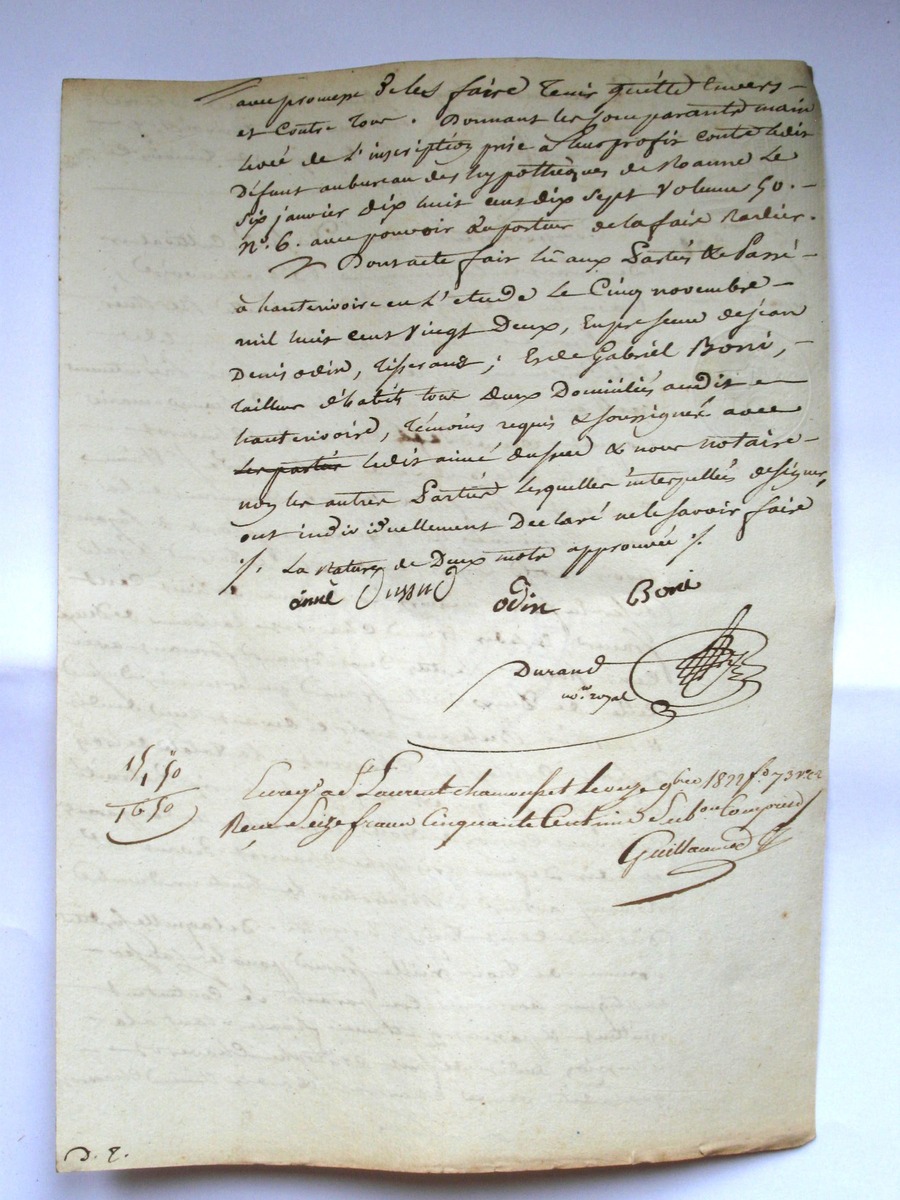 avec promesse de les faire tenir quitte Envers -
et contre tous. Donnant les comparants main
levée de L'inscription prise à leur profit contre ledit
Défunt au bureau des hypothèques de Roanne Le
Six janvier dix huit cent dix sept Volume 50. -
N°. 6. avec pouvoir au porteur de la faire Radier.
Dont acte fait lu aux Parties & Passé -
à hauterivoire en L'etude Le Cinq novembre -
mil huit cent Vingt Deux, En presence de jean
Denis odin, tisserand ; Et de Gabriel Boni, -
tailleur d'habits tous deux Domiciliés audit -
hauterivoire, témoins requis & soussignés avec
les parties ledit aimé dussud & nous notaire -
non les autres Parties lesquelles interpellées de signer,
ont individuellement Declaré ne le savoir faire
/. La rature de Deux mots approuvée /.
aimé Dussud odin Boni
Durand
no.re royal
15
1 50
16 50
Enreg. à St. Laurent chamousset Le onze 9bre 1822 f.o 73
Reçu Seize francs Cinquante Centimes Subon Compris
Guillaumed
D. E.